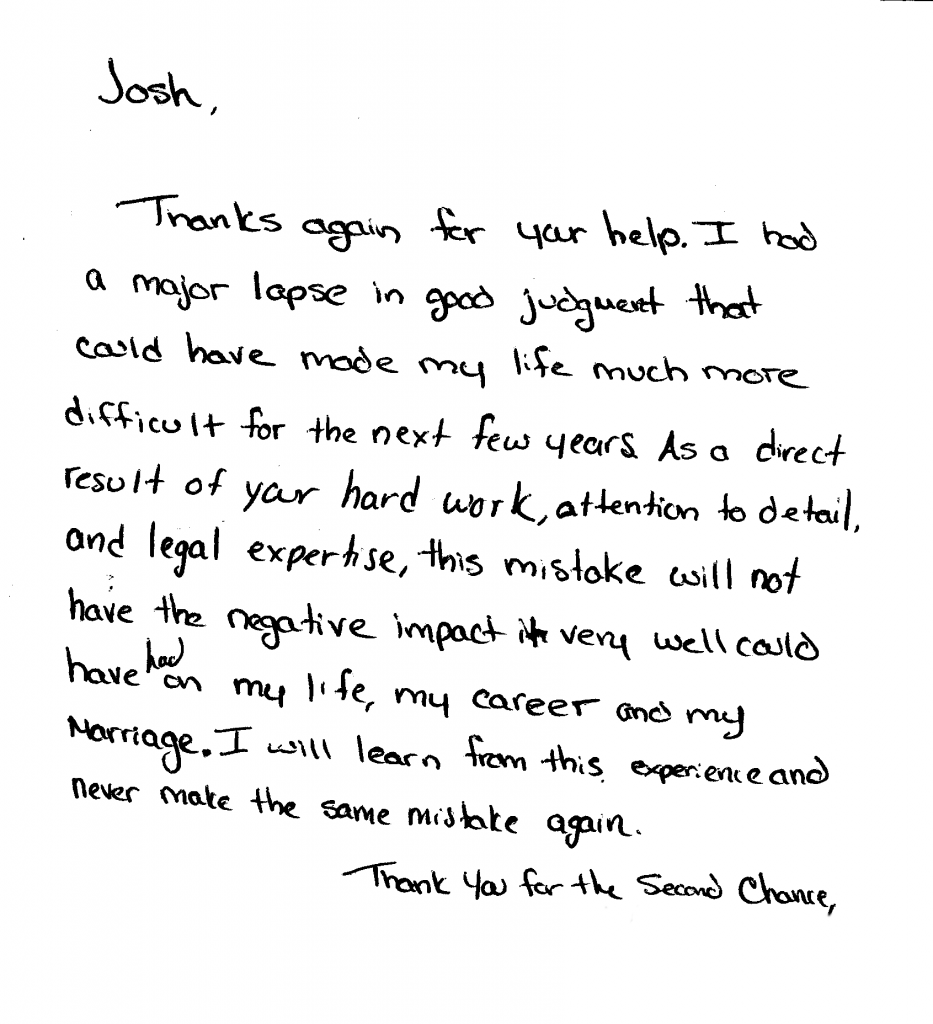 Josh,
Thanks again for your help. I had
a major lapse in good judgment that
could have made my life much more
difficult for the next few years. As a direct
result of your hard work, attention to detail,
and legal expertise, this mistake will not
have the negative impact it very well could
have had on my life, my career and my
Marriage. I will learn from this experience and
never make the same mistake again.
Thank You for the Second Chance,